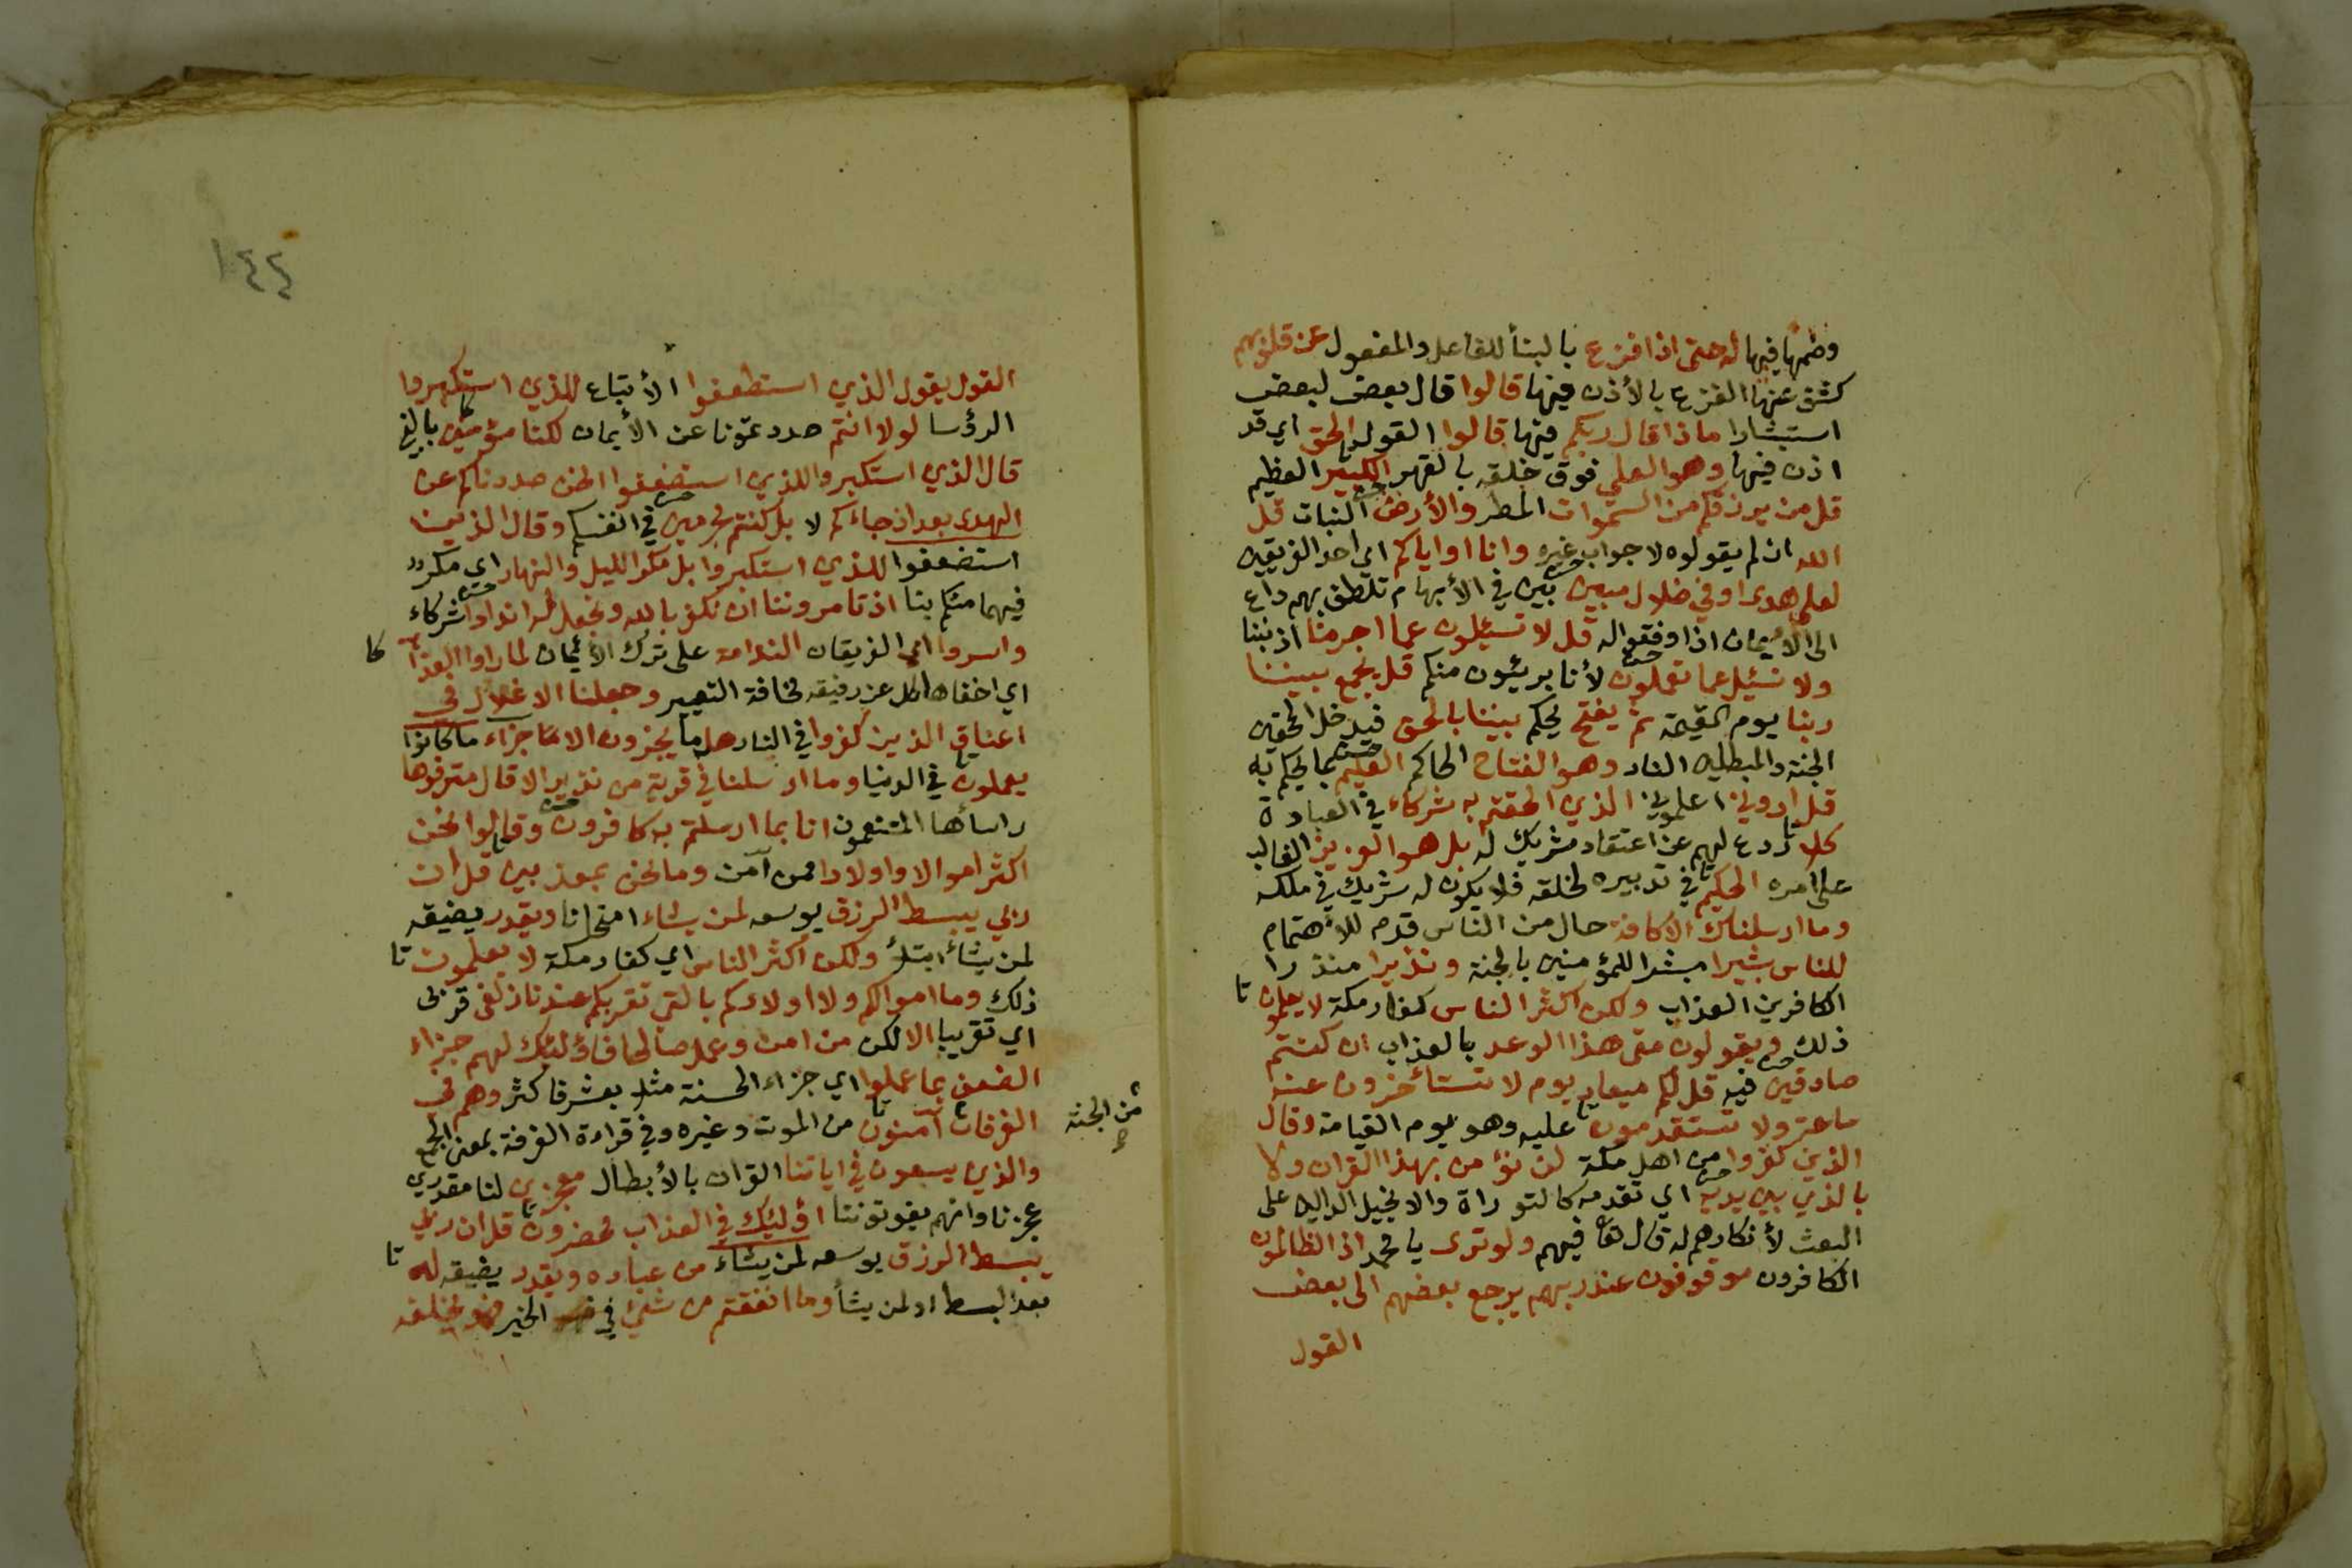 وظمها فيها له حتى اذا فزع بالبنأ للفاعل والمفعول عن قلوبهم
كشف عنها الفزع بالأذن فيها قالوا قال بعض لبعض
استبشارا ماذا قال ربكم فيها قالوا القول الحق اي قد
اذن فيها وهو العلي فوق خلقه بالقهر الكبير العظيم
قل من يرزقكم من السموات المطر والأرض النبات قل
الله ان لم يقولوه لا جواب غيره وانا او اياكم اي احد الفريقين
لعلى هدى او في ضلال مبين بين في الأبهام تلطف بهم داع
الى الأيمان اذا وفقوا له قل لا تسئلون عما اجرمنا اذنبنا
ولا نسئل عما تعملون لأنا بريئون منكم قل يجمع بيننا
ربنا يوم القيمة ثم يفتح يحكم بيننا بالحق فيدخل المحقين
الجنة والمبطلين النار وهو الفتاح الحاكم العليم بما يحكم به
قل اروني اعلموني الذي الحقتم به شركاء في العبادة
كلا ردع لهم عن اعتقاد شريك له بل هو العزيز الغالب
على امره الحكيم في تدبيره لخلقه فلا يكون له شريك في ملكه
وما ارسلناك الا كافة حال من الناس قدم للأهتمام
للناس بشيرا مبشرا للمؤمنين بالجنة ونذيرا منذرا
الكافرين العذاب ولكن اكثر الناس كفار مكة لا يعلمون
ذلك ويقولون متى هذا الوعد بالعذاب ان كنتم
صادقين فيه قل لكم ميعاد يوم لا تستأخرون عنه
ساعة ولا تستقدمون عليه وهو يوم القيامة وقال
الذين كفروا من اهل مكة لن نؤمن بهذا القران ولا
بالذي بين يديه اي تقدمه كالتوراة والانجيل الدالين على
البعث لأنكارهم له قال تعا فيهم ولو ترى يا محمد اذ الظالمون
الكافرون موقوفون عند ربهم يرجع بعضهم الى بعض
القول
١٤٤
القول يقول الذي استطعفوا الأتباع للذي استكبروا
الرؤسا لولا انتم صددتمونا عن الأيمان لكنا مؤمنين بالنبي
قال الذي استكبروا للذي استضعفوا انحن صددناكم عن
الهدى بعد اذ جاءكم لا بل كنتم مجرمين في انفسكم وقال الذين
استضعفوا للذي استكبروا بل مكر الليل والنهار اي مكر
فيهما منكم بنا اذ تامروننا ان نكفر بالله ونجعل له اندادا شركاء
واسروا اي الفريقان الندامة على ترك الأيمان لما راوا العذاب
اي اخفاها كل عن رفيقه مخافة التعيير وجعلنا الاغلال في
اعناق الذين كفروا في النار هل ما يجزون الا جزاء ما كانوا
يعملون في الدنيا وما ارسلنا في قرية من نذير الا قال مترفوها
راسأها المتنعمون انا بما ارسلتم به كافرون وقالوا نحن
اكثر اموالا واولادا ممن آمن وما نحن بمعذبين قل ان
ربي يبسط الرزق يوسعه لمن يشاء امتحانا ويقدر يضيقه
لمن يشأ ابتلأ ولكن اكثر الناس اي كفار مكة لا يعلمون
ذلك وما اموالكم ولا اولادكم بالتي تقربكم عندنا زلفى قربى
اي تقريبا الا لكن من امن وعمل صالحا فاؤلئك لهم جزاء
الضعف بما عملوا اي جزاء الحسنة مثل بعشر فاكثر وهم في
الغرفات آمنون من الموت وغيره وفي قراءة الغرفة بمعنى الجمع
من الجنة
والذي يسعون في اياتنا القران بالأبطال معجزين لنا مقدرين
عجزنا وانهم يفوتوننا اؤلئك في العذاب محضرون قل ان ربي
يبسط الرزق يوسعه لمن يشاء من عباده ويقدر يضيقه له
بعد البسط او لمن يشأ وما انفقتم من شيئ في الخير فهو يخلفه